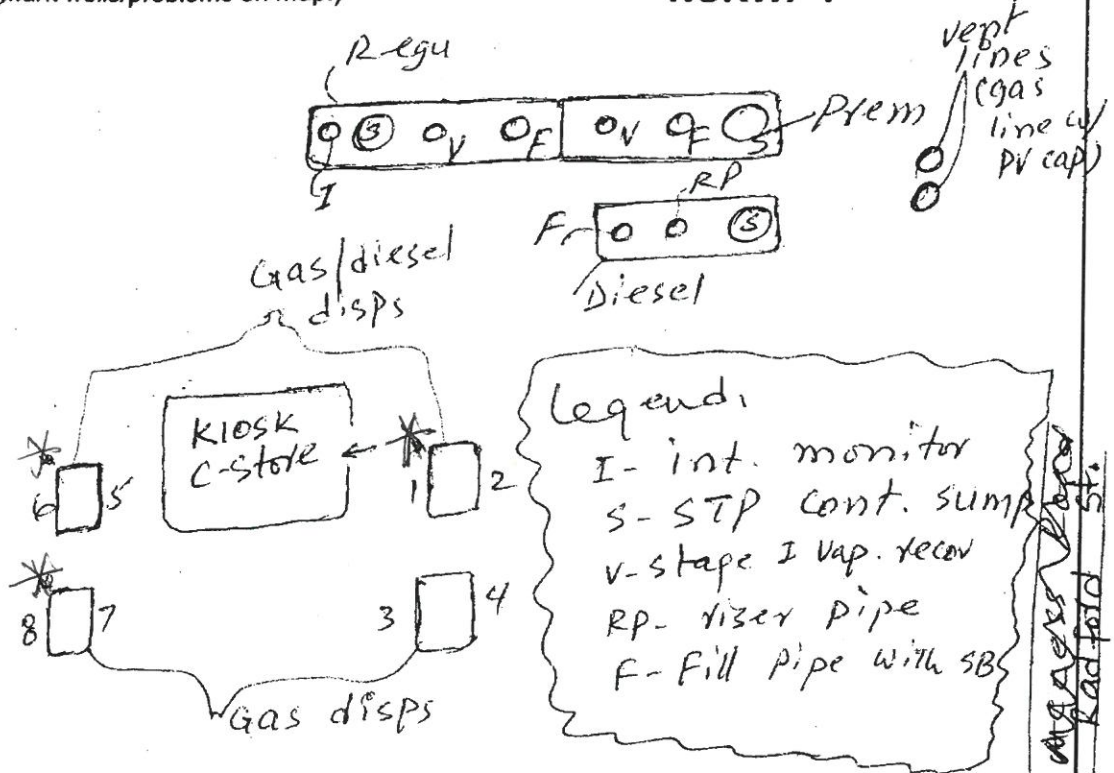 Regu
I
S
V
F
V
F
S
Prem
vent
lines
(gas
line w/
PV cap)
F
RP
S
Diesel
Gas/diesel
disps
KIOSK
C-Store
6
5
1
2
8
7
3
4
Gas disps
Legend,
I- int. monitor
S- STP cont. sump
V- stage I vap. recov
RP- riser pipe
F- Fill pipe with SB
Radford St.